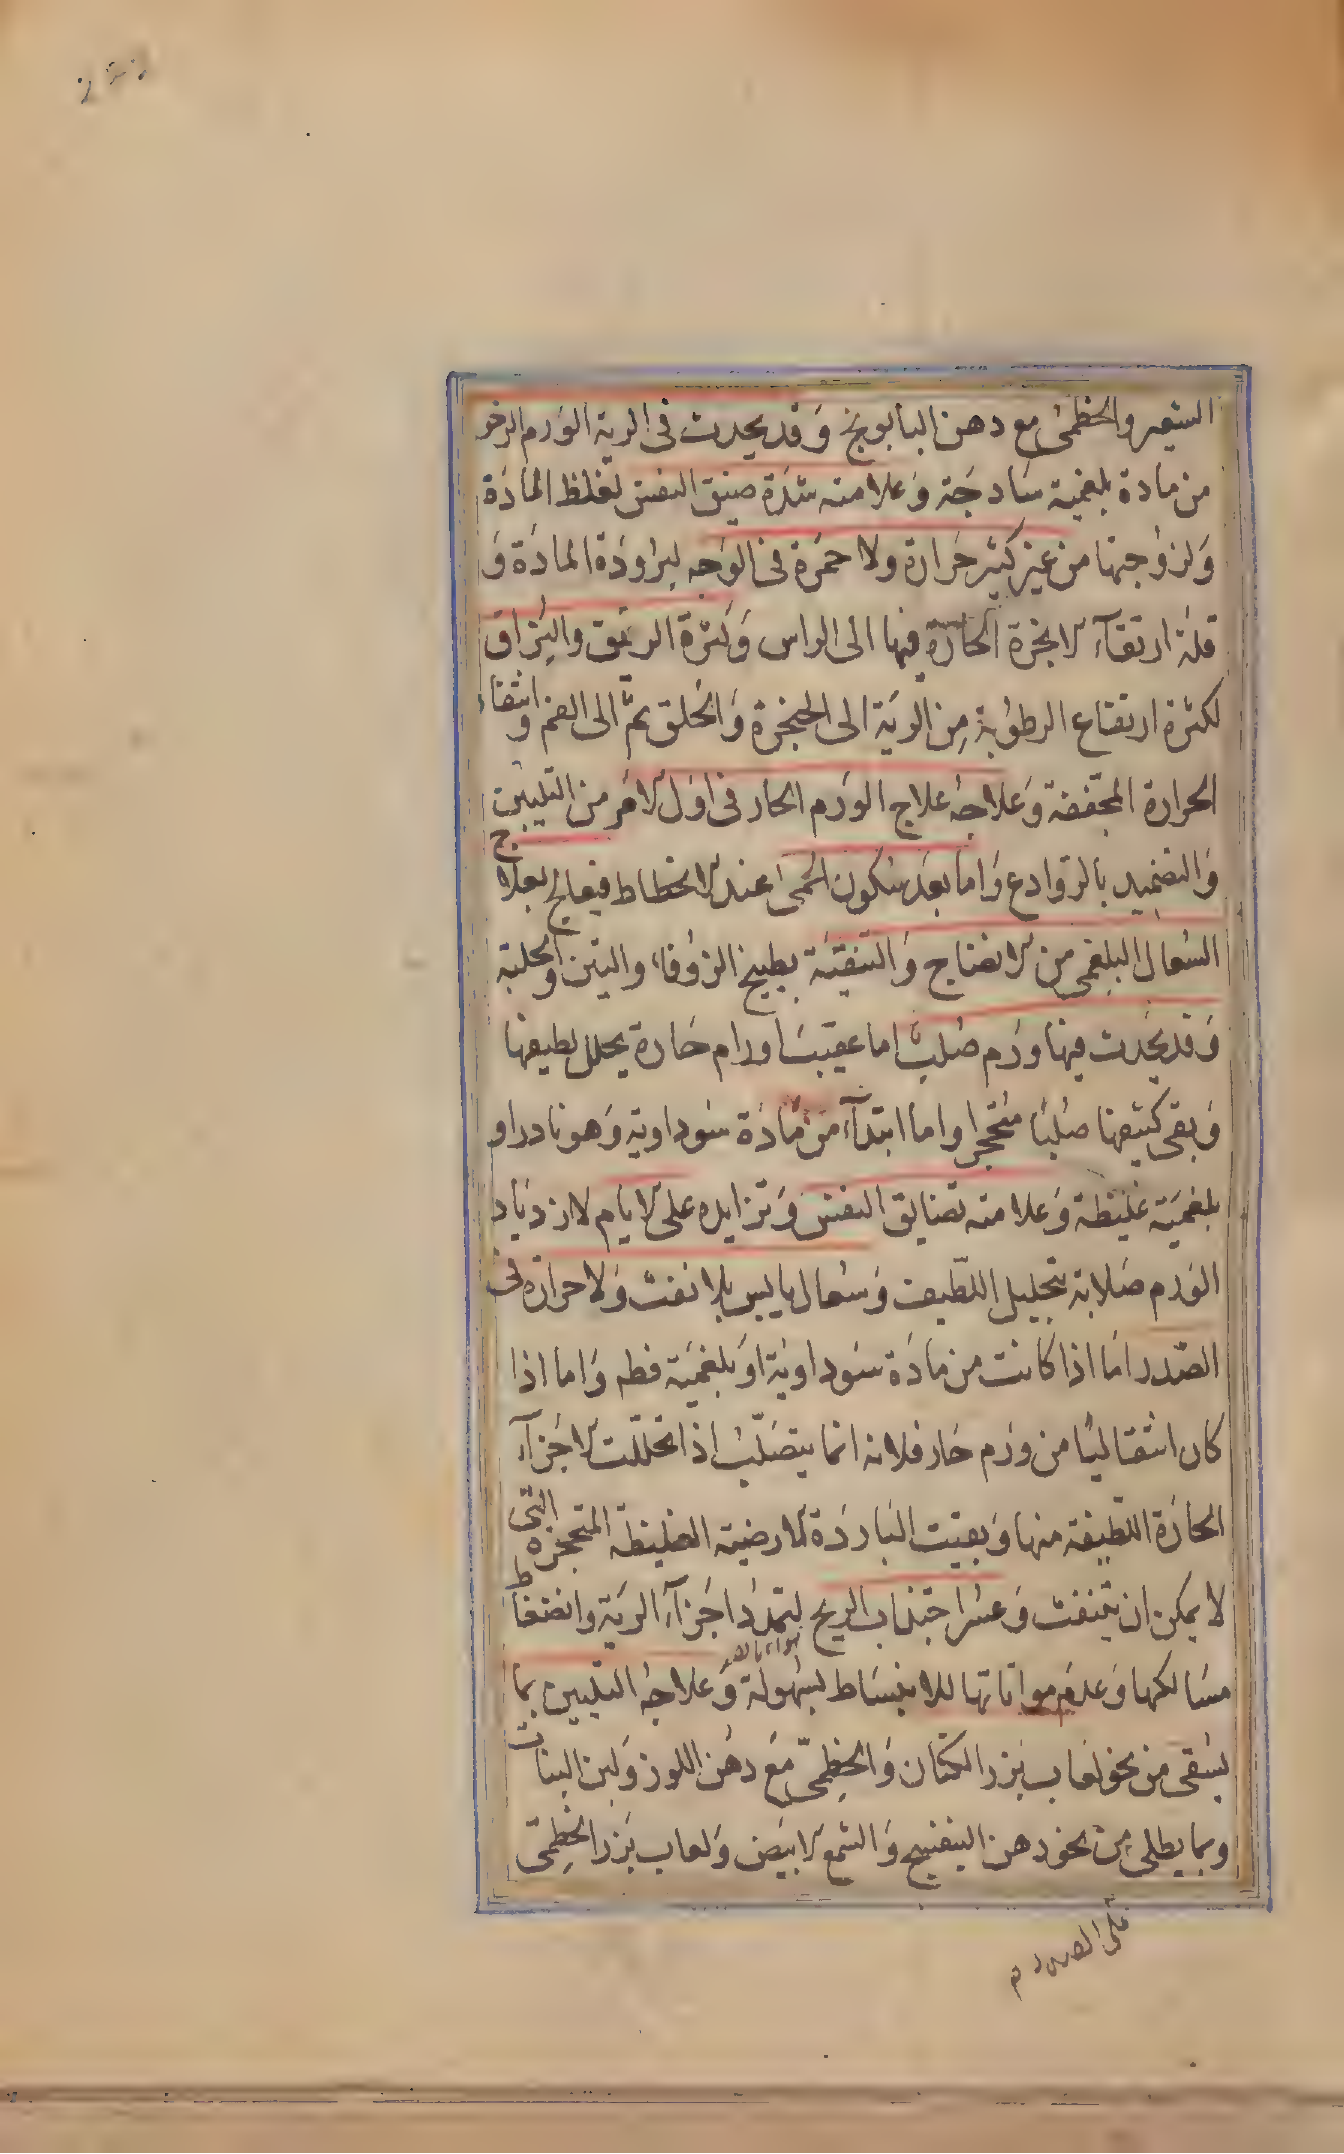 الشعير والخطمى مع دهن البابونج وَقد يحدث فى الرية الوَرم الرخو
من مادة بلغمية سَادجَة وَعلامته شدَة ضيق النفس لغلظ المادَة
وَلزوُجتها من غير كثير حَرارة ولا حمرَة فى الوَجه لبرَاودَة المادَة وَ
قلة ارتقآء الابخرة الحَارَة فيها الى الراس وَكثرَة الريَق والبزاق
لكثرَة ارتفاع الرطوُبة مِن الريَة الى الحنجَرة وَالحَلق ثمّ الى الفم وانتفاء
الحرارة المجَففة وَعلاجهُ علاج الوَرم الحار فى اوَل الامَر من التليين
وَالتضميد بالروَادع وَاما بعَد سُكون الحُمىَ عند الانحطاط فيعالج بعلاج
السُعال البلغمى من الانضاج وَالتنقيَة بطبيخ الزوُفاء والتين والحلبة
وَقد يحَدث فيها ورَم صُلبُ اما عقيبَ اورام حَارة يحلل لطيفها
وَبقى كثيفها صُلبًا مُتحجرا واما ابتدآء من مَادَة سَوداوية وَهو نادر او
بلغميَة غليظة وَعلامته تضايق النفس وَتزايده على الايام لازديَاد
الوَرم صَلابة بتحَليل اللّطيف وَسُعال يابس بلا نفث وَلا حرارَة فى
الصّدر امَا اذا كانت من مادَة سَوداويَة اوَ بلغميَة فظهر وَاما اذا
كان انتقاليًا من ورَم حَار فلانه انما يتصَلّبُ اذا تحَللّت الاجَزآء
الحارَة اللطيفة منها وَبقيَت البَاردَة الارضية الغليظة المتحجرَة التى
لا يمكن ان يَتنفث وَعسُر اجتذاب الريح لتمدُد اجَزآء الريَة وانضغاط
مسَالكها وَعدمَ مواتاتها للانبسَاط بسُهولَة وَعلاجهُ التليين بما
يسُقى من نحو لعاب بَزر الكتان وَالخِطمىّ مَع دهُن اللوز وَلبن البنات
وبما يطلى مِن نحو دهن البنفسج وَالشمع الابيَض وَلعاب بَزر الخِطمىّ
على الصدر م